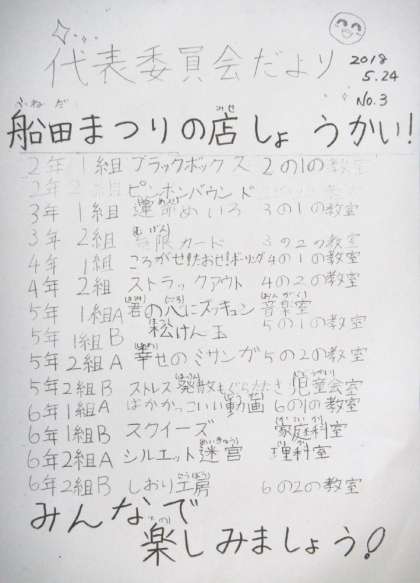 代表委員会だより
2018
5.24
No.3
船田まつりの店しょうかい!
2年 1組 ブラックボックス 2の1の教室
2年 組 ピンポンバウンド
3年 1組 運命めいろ 3の1の教室
3年 2組 無限カード 3の2の教室
4年 1組 ころがせ!たおせ!ボーリング 4の1の教室
4年 2組 ストラックアウト 4の2の教室
5年 1組A 君の心にズッキュン 音楽室
5年 1組B 松けん玉 5の1の教室
5年 2組A 幸せのミサンガ 5の2の教室
5年 2組B ストレス発散もぐらたたき 児童会室
6年 1組A ばかかっこいい動画 6の1の教室
6年 1組B スクイーズ 家庭科室
6年 2組A シルエット迷宮 理科室
6年 2組B しおり工房 6の2の教室
みんなで
楽しみましょう!